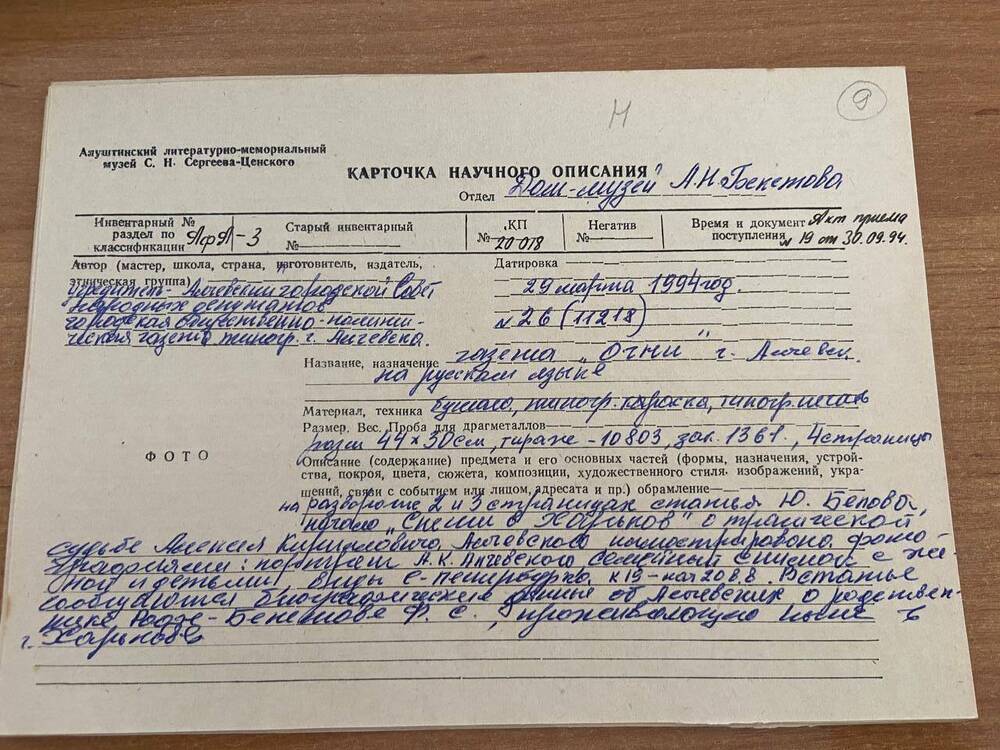 Н
9
Алуштинский литературно-мемориальный
музей С. Н. Сергеева-Ценского
КАРТОЧКА НАУЧНОГО ОПИСАНИЯ
Отдел Дом-музей А.Н.Бекетова
Инвентарный №
раздел по
классификации АфА-3
Старый инвентарный
№
КП
№ 20 018
Негатив
№
Время и документ Акт приема
поступления № 19 от 30.09.94.
Автор (мастер, школа, страна, изготовитель, издатель,
этническая группа)
учредитель Алчевский городской Совет
народных депутатов
городская общественно-полити-
ческая газета типогр. г. Алчевска.
Датировка
29 марта 1994 год
№ 26 (11218)
Название, назначение газета „Огни" г. Алчевск
на русском языке
Материал, техника бумага, типогр. краска, типогр. печать
Размер. Вес. Проба для драгметаллов
разм 44 х 30 см, тираж - 10803, зак. 1361, 4 страницы
ФОТО
Описание (содержание) предмета и его основных частей (формы, назначения, устрой-
ства, покроя, цвета, сюжета, композиции, художественного стиля, изображений, укра-
шений, связи с событием или лицом, адресата и пр.) обрамление
на развороте 2 и 3 страницах статья Ю. Белова
начало в Харьков" о трагической
судьбе Алексея Кирилловича Алчевского иллюстрирована фото-
графиями: портрет А.К. Алчевского семейный снимок с же-
ной и детьми, виды с-петербурга к 19 - нач 20 в.в. В статье
сообщаются биографические данные об Алчевских о родствен-
нике Ф. С., проживающию ныне в
г. Харькове